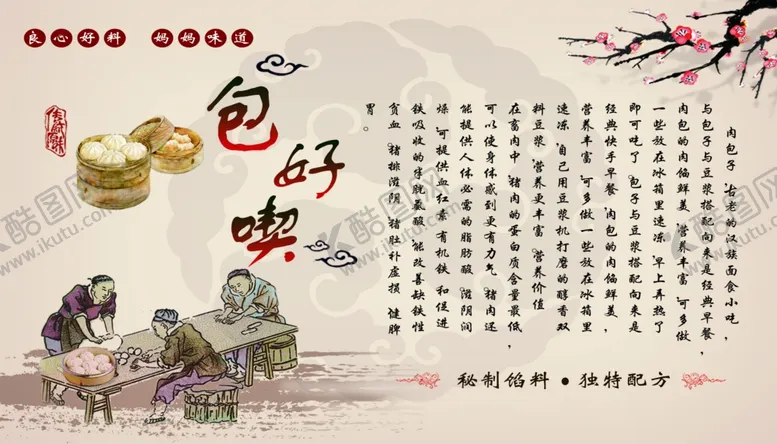 良心好料 妈妈味道
包好喫
肉包子,古老的汉族面食小吃,
与包子与豆浆搭配向来是经典早餐,
肉包的肉馅鲜美,营养丰富,可多做
一些放在冰箱里速冻,早上再热了
即可吃了,包子与豆浆搭配向来是
经典快手早餐,肉包的肉馅鲜美,
营养丰富,可多做一些放在冰箱里
速冻,自己用豆浆机打磨的醇香双
料豆浆,营养更丰富,营养价值
在畜肉中,猪肉的蛋白质含量最低,
可以使身体感到更有力气,猪肉还
能提供人体必需的脂肪酸,滋阴润
燥,可提供血红素,有机铁,和促进
铁吸收的半胱氨酸,能改善缺铁性
贫血,猪排滋阴,猪肚补虚损,健脾
胃。
秘制馅料 • 独特配方
酷图网
www.ikutu.com